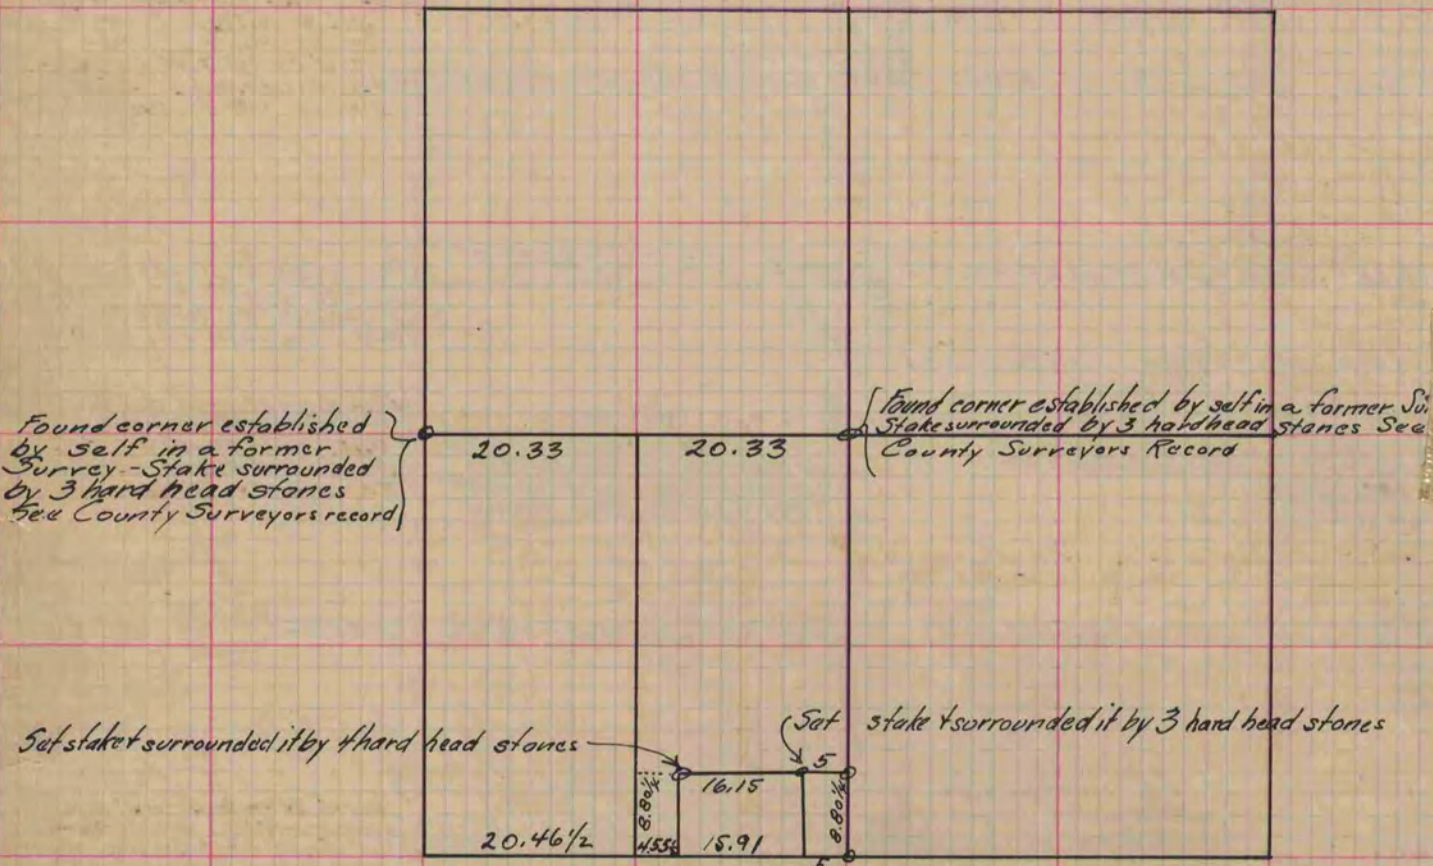 Found corner established
by self in a former
Survey - Stake surrounded
by 3 hard head stones
See County Surveyors record
20.33
20.33
Found corner established by self in a former
Stake surrounded by 3 hardhead stones See
County Surveyors Record
Set stake & surrounded it by 4 hard head stones
Set stake & surrounded it by 3 hard head stones
5
16.15
8.80¼
8.80¼
20.46½
15.91
5